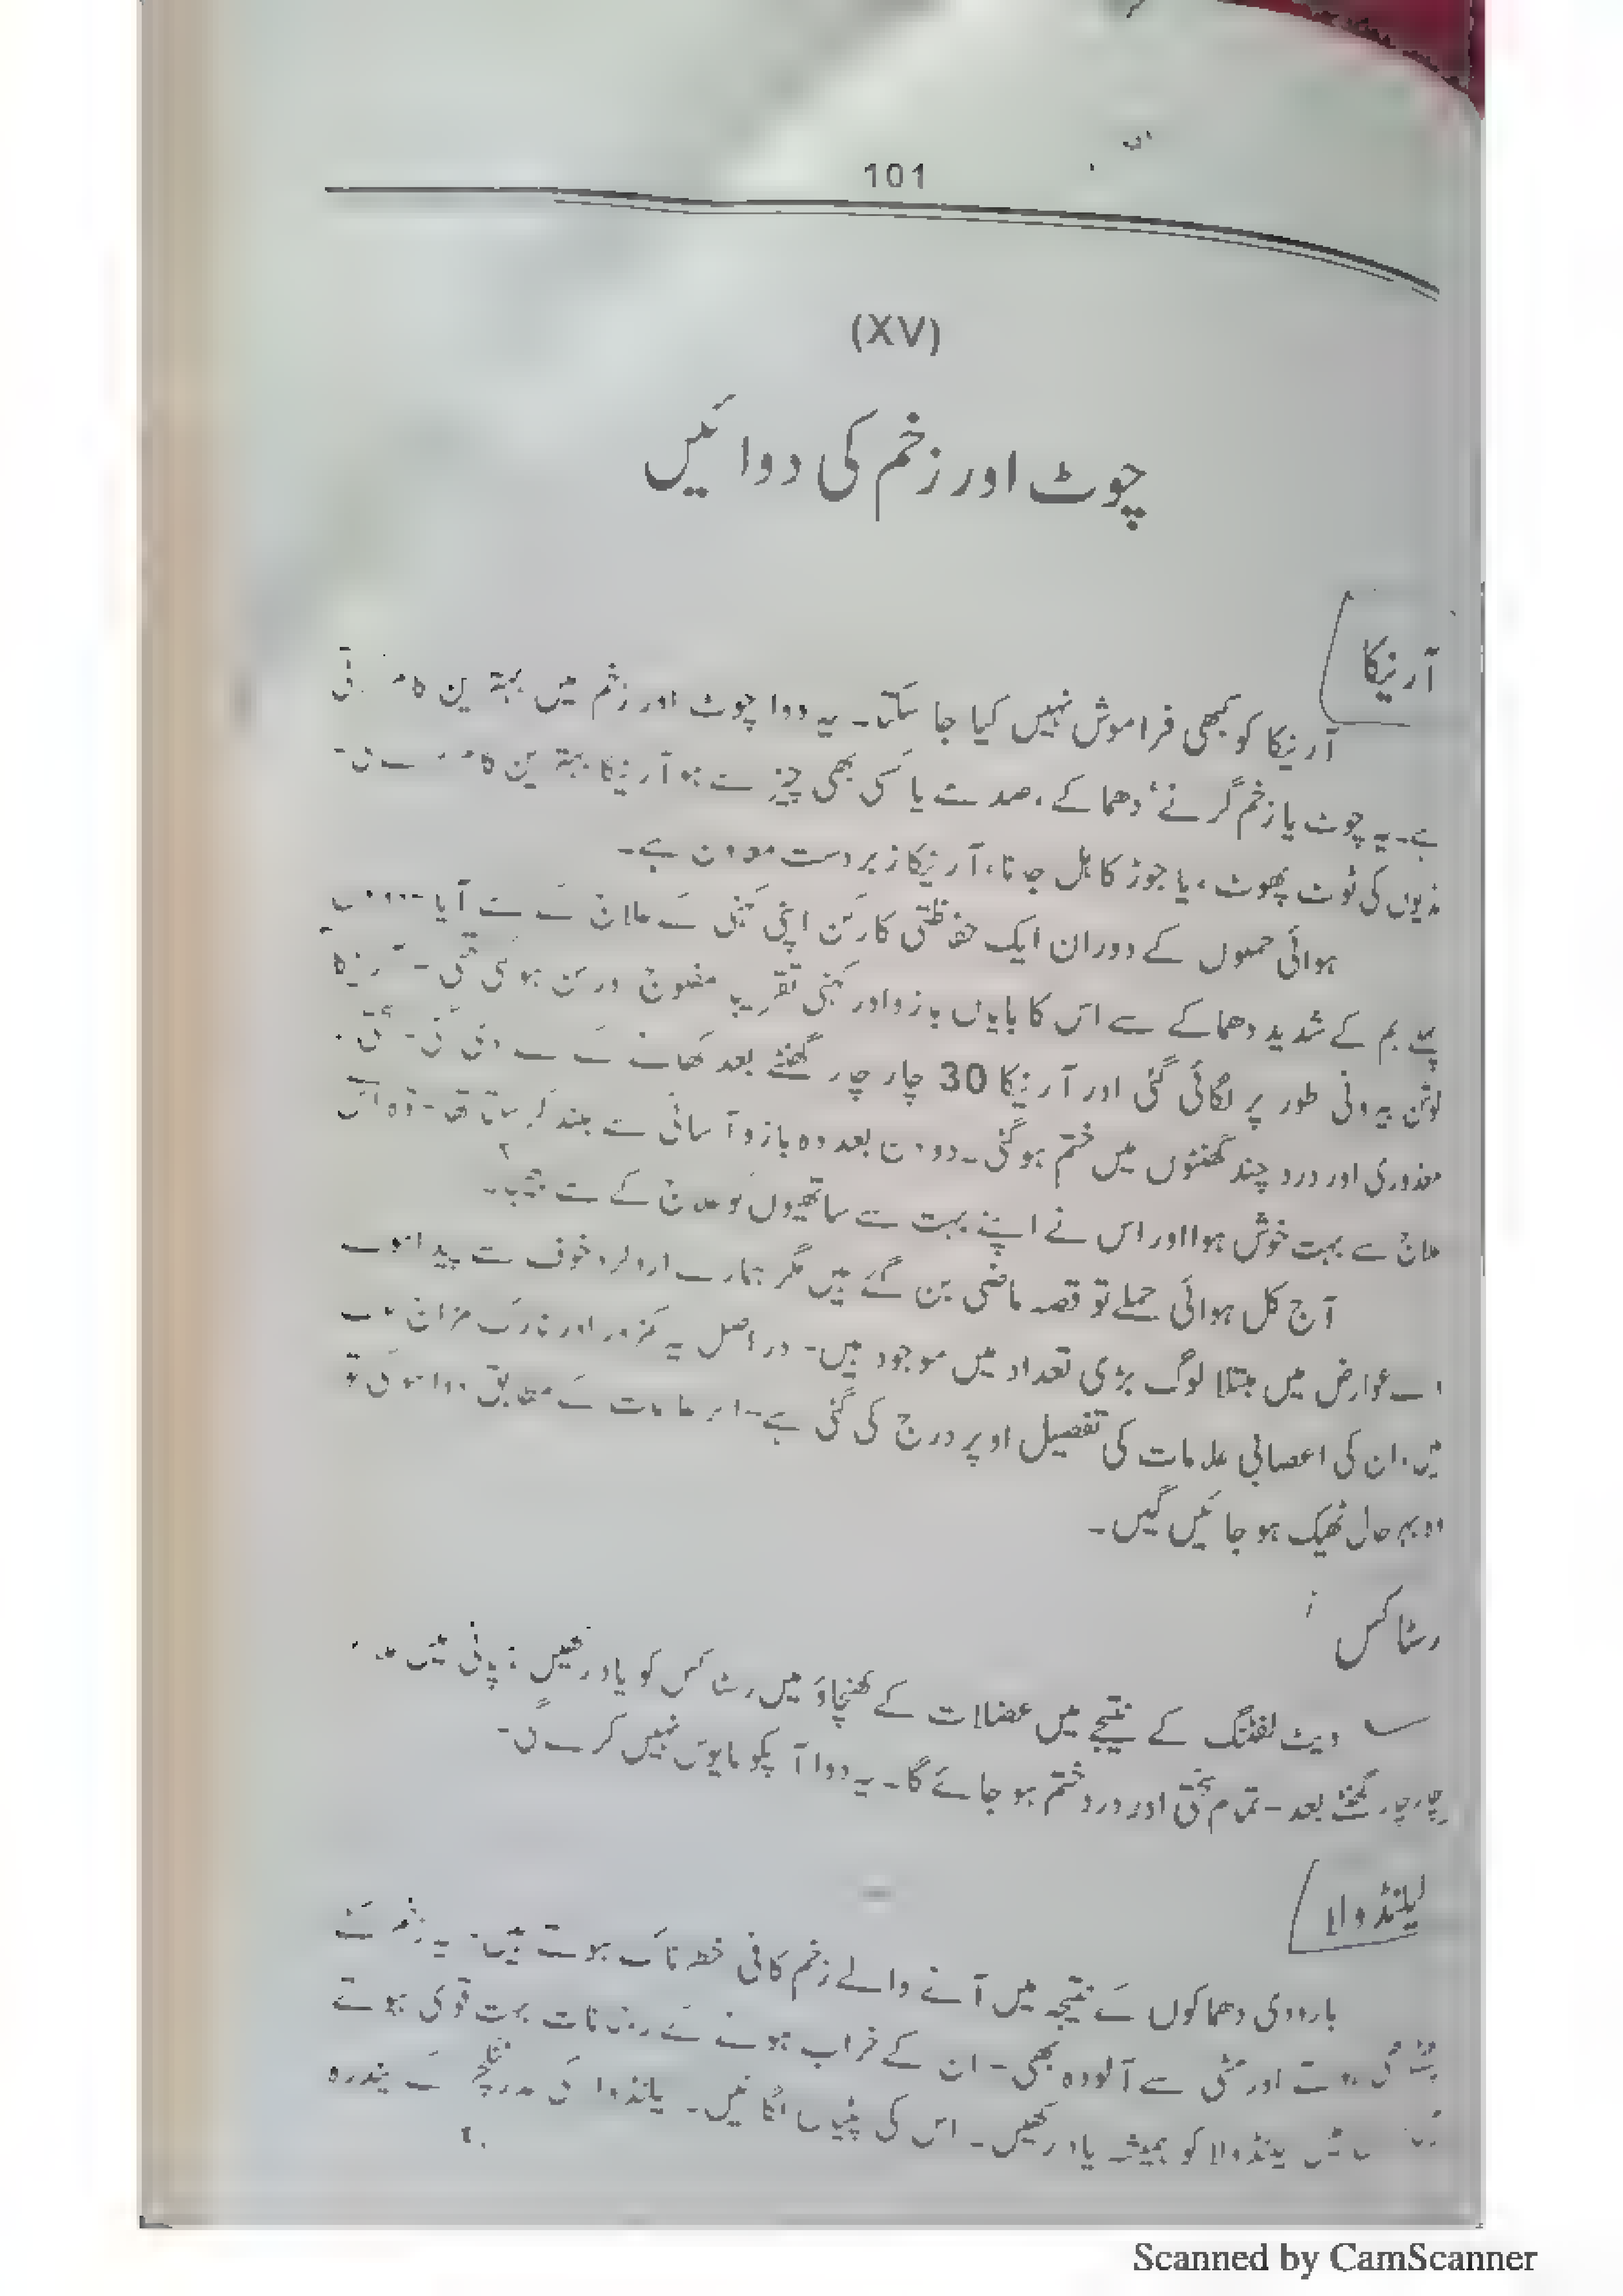 101
(XV)
چوٹ اور زخم کی دوائیں
آرنیکا
آرنیکا کو کبھی فراموش نہیں کیا جا سکتا۔ یہ دوا چوٹ اور زخم میں بہترین
ہے۔ یہ چوٹ یا زخم گرنے، دھماکے، صدمے یا کسی بھی چیز سے ہو آرنیکا بہترین
ہڈیوں کی ٹوٹ پھوٹ، یا جوڑ کا ہل جانا، آرنیکا زبردست معاون ہے۔
ہوائی حملوں کے دوران ایک حفاظتی کارکن اپنی کہنی کے علاج کے لئے آیا
بم کے شدید دھماکے سے اس کا بایاں بازو اور کہنی تقریباً مفلوج ہوگئی تھی۔ آرنیکا
لوشن بیرونی طور پر لگائی گئی اور آرنیکا 30 چار چار گھنٹے بعد کھانے کے لئے دی گئی۔
معذوری اور درد چند گھنٹوں میں ختم ہوگئی۔ دو دن بعد وہ بازو آسانی سے بلند کر سکتا تھا۔ وہ اس
علاج سے بہت خوش ہوا اور اس نے اپنے بہت سے ساتھیوں کو علاج کے لئے بھیجا۔
آج کل ہوائی حملے تو قصہ ماضی بن گئے ہیں مگر ہمارے اردگرد خوف سے پیدا ہونے
والے عوارض میں مبتلا لوگ بڑی تعداد میں موجود ہیں۔ دراصل یہ کمزور اور نازک مزاج
ہیں، ان کی اعصابی علامات کی تفصیل اوپر درج کی گئی ہے۔ اگر علامات کے مطابق دوا ہوگی تو
وہ بہر حال ٹھیک ہو جائیں گیں۔
رسٹاکس
ویٹ لفٹنگ کے نتیجے میں عضلات کے کھنچاؤ میں رسٹاکس کو یاد رکھیں، پانی میں
چار چار گھنٹے بعد۔ تمام سختی اور درد ختم ہو جائے گا۔ یہ دوا آپکو مایوس نہیں کرے گی۔
لیلنڈولا
بارودی دھماکوں کے نتیجہ میں آنے والے زخم کافی خطرناک ہوتے ہیں۔ یہ زخم
اور مٹی سے آلودہ بھی۔ ان کے خراب ہونے کے امکانات بہت قوی ہوتے
میں کیلنڈولا کو ہمیشہ یاد رکھیں۔ اس کی پٹیاں لگائیں۔ کیلنڈولا کی مدر ٹنکچر کے پندرہ
Scanned by CamScanner